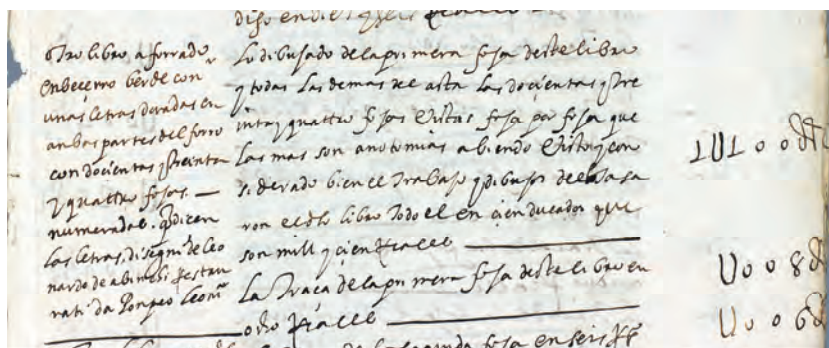 diso en diez y seis Reales
otro libro, aforrado
en beçerro berde con
unas letras doradas en
ambas partes del forro
con docientas y treinta
y quattro fojas. —
numeradas. q̃ dicen
las letras, disegni de leo
nardo de abinchi Restau
rati da Pompeo leoni
Lo dibusado de la primera foja deste libro
y todas las demas asta las docientas y tre
inta y quattro fojas Vistas foja por foja que
las mas son anotomias abiendo Visto y con
siderado bien el trabajo y dibujos de tasa
ron el dho libro todo el en cien ducados que
son mill y cien Reales
La Traça de la primera foja deste libro en
ocho Reales
foja en seis Rs